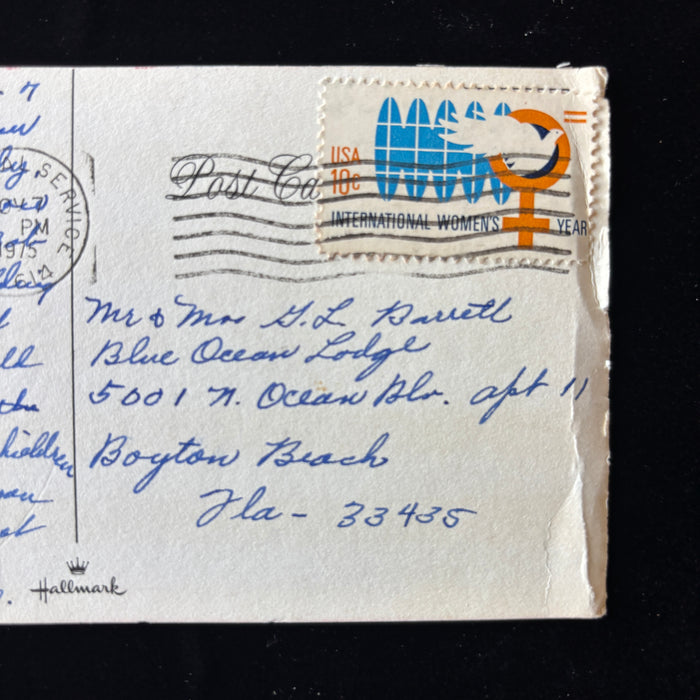 7
by,
SERVICE
PM
1975
Post Ca
USA
10c
INTERNATIONAL WOMEN'S YEAR
Mr & Mrs G.L. Barrett
Blue Ocean Lodge
5001 N. Ocean Blv. apt 11
Boyton Beach
Fla - 33435
children
Hallmark